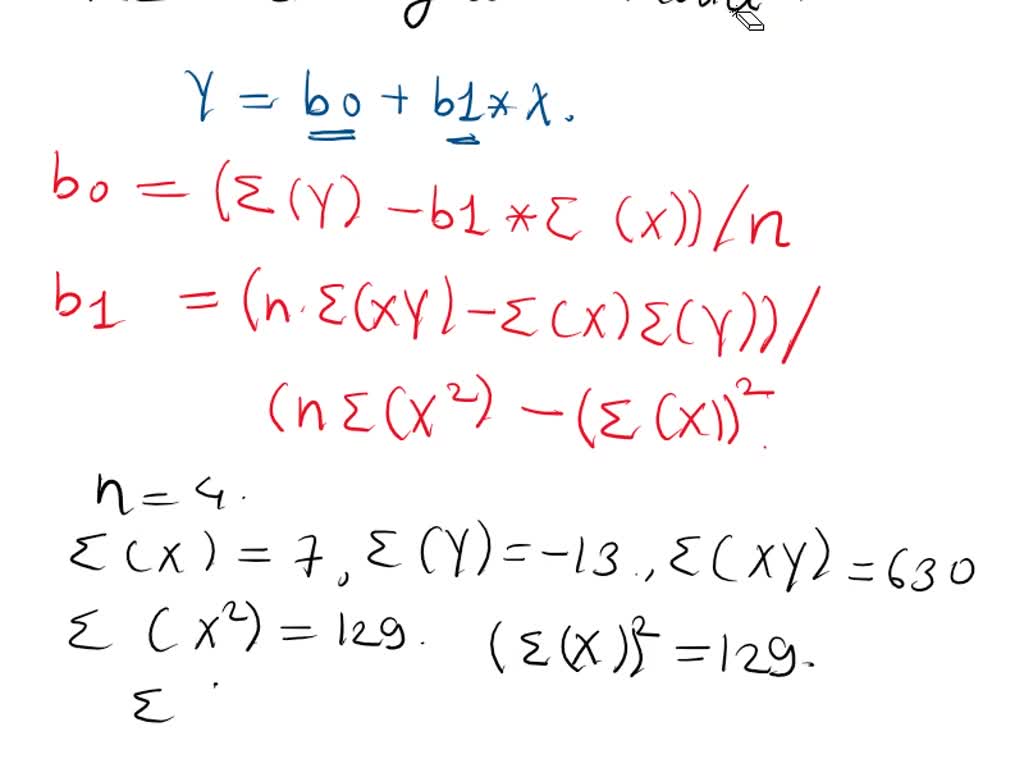 Y = b0 + b1 * X.
b0 = (Σ(Y) - b1 * Σ (X))/n
b1 = (n·Σ(XY) - Σ(X)Σ(Y))/
(nΣ(X²) - (Σ(X))²
n = 4.
Σ(X) = 7, Σ(Y) = -13., Σ(XY) = 630
Σ (X²) = 129. (Σ(X))² = 129.
Σ